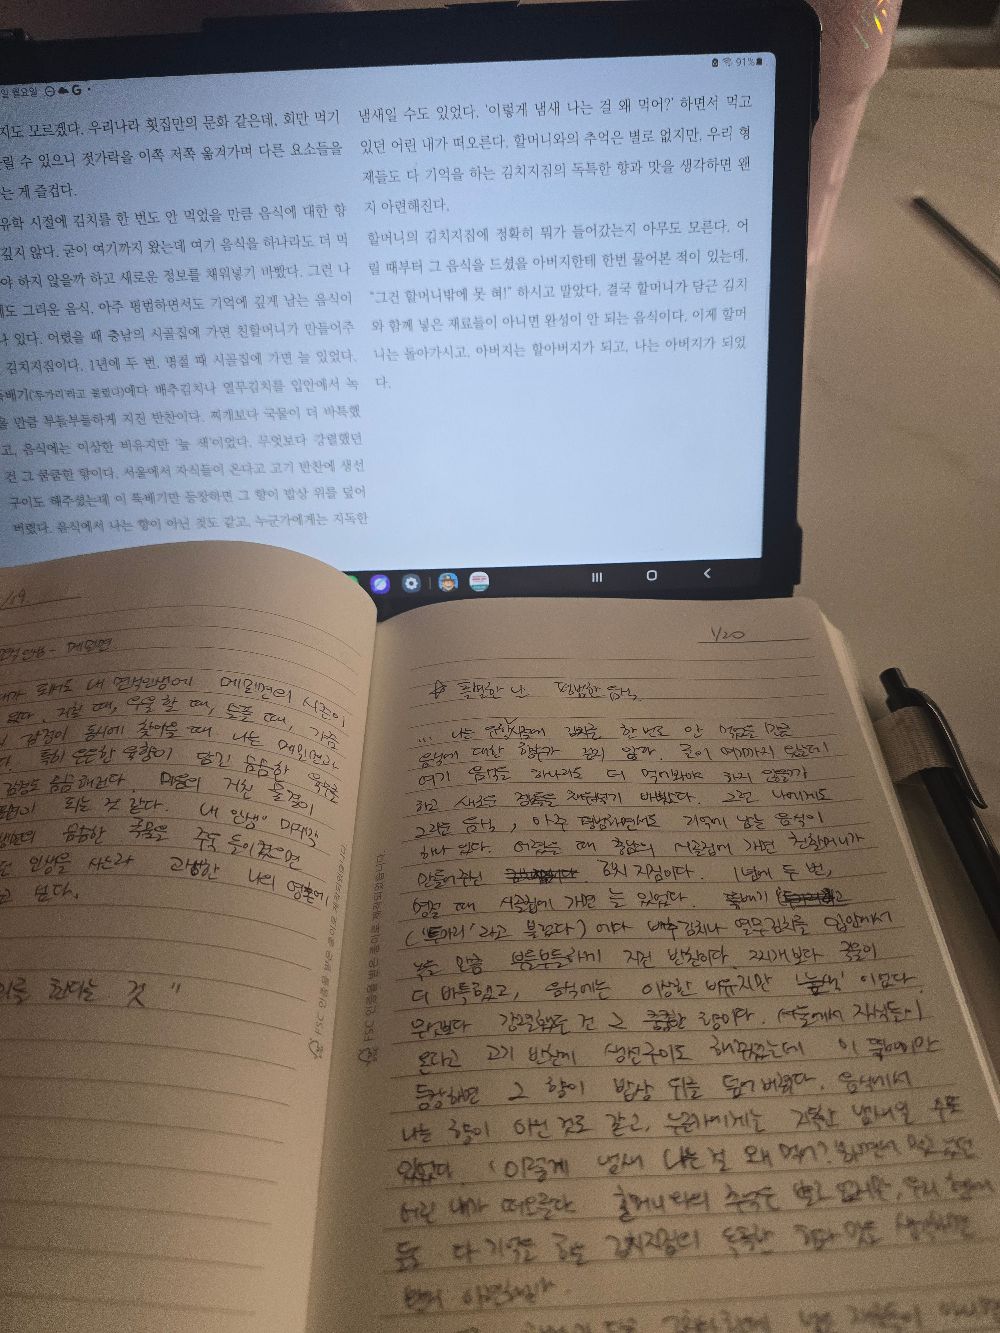 일 월요일
91%
지도 모르겠다. 우리나라 횟집만의 문화 같은데, 회만 먹기
릴 수 있으니 젓가락을 이쪽 저쪽 옮겨가며 다른 요소들을
는 게 즐겁다.
유학 시절에 김치를 한 번도 안 먹었을 만큼 음식에 대한 향
깊지 않다. 굳이 여기까지 왔는데 여기 음식을 하나라도 더 먹
야 하지 않을까 하고 새로운 정보를 채워넣기 바빴다. 그런 나
게도 그리운 음식, 아주 평범하면서도 기억에 깊게 남는 음식이
나 있다. 어렸을 때 충남의 시골집에 가면 친할머니가 만들어주
김치지짐이다. 1년에 두 번, 명절 때 시골집에 가면 늘 있었다.
뚝배기(투가리라고 불렀다)에다 배추김치나 열무김치를 입안에서 녹
을 만큼 부들부들하게 지진 반찬이다. 찌개보다 국물이 더 바특했
고, 음식에는 이상한 비유지만 '늪 색'이었다. 무엇보다 강렬했던
건 그 쿰쿰한 향이다. 서울에서 자식들이 온다고 고기 반찬에 생선
구이도 해주셨는데 이 뚝배기만 등장하면 그 향이 밥상 위를 덮어
버렸다. 음식에서 나는 향이 아닌 것도 같고, 누군가에게는 지독한
냄새일 수도 있었다. '이렇게 냄새 나는 걸 왜 먹어?' 하면서 먹고
있던 어린 내가 떠오른다. 할머니와의 추억은 별로 없지만, 우리 형
제들도 다 기억을 하는 김치지짐의 독특한 향과 맛을 생각하면 왠
지 아련해진다.
할머니의 김치지짐에 정확히 뭐가 들어갔는지 아무도 모른다. 어
릴 때부터 그 음식을 드셨을 아버지한테 한번 물어본 적이 있는데,
"그건 할머니밖에 못 혀!" 하시고 말았다. 결국 할머니가 담근 김치
와 함께 넣은 재료들이 아니면 완성이 안 되는 음식이다. 이제 할머
니는 돌아가시고, 아버지는 할아버지가 되고, 나는 아버지가 되었
다.
/19
메밀면
내 면식인생에 메밀면이 시준이
없다. 지칠 때, 우울할 때, 슬플 때, 가끔
감정이 동시에 찾아올 때 나는 메밀면과
특히 은은한 육향이 담긴 슴슴한 육수는
감정도 슴슴해진다. 마음의 거친 물결이
되는 것 같다. 내 인생의 마지막
슴슴한 국물을 주욱 들이켰으면
인생을 사느라 고생한 나의 영혼에
고 보다.
를 한다는 것"
1/20
☆ 특별한 나 평범한 음식
... 나는 유학시절에 김치를 한 번도 안 먹었을 만큼
음식에 대한 향수가 깊지 않다. 굳이 여기까지 왔는데
여기 음식을 하나라도 더 먹어봐야 하지 않을까
하고 새로운 정보를 채워넣기 바빴다. 그런 나에게도
그리운 음식, 아주 평범하면서도 기억에 남는 음식이
하나 있다. 어렸을 때 충남의 시골집에 가면 친할머니가
만들어주신 김치지짐이다. 1년에 두 번,
명절 때 시골집에 가면 늘 있었다. 뚝배기
('투가리'라고 불렀다)에다 배추김치나 열무김치를 입안에서
녹을 만큼 부들부들하게 지진 반찬이다. 찌개보다 국물이
더 바특했고, 음식에는 이상한 비유지만 '늪색'이었다.
무엇보다 강렬했던 건 그 쿰쿰한 향이다. 서울에서 자식들이
온다고 고기 반찬에 생선구이도 해주셨는데 이 뚝배기만
등장하면 그 향이 밥상 위를 덮어버렸다. 음식에서
나는 향이 아닌 것도 같고, 누군가에게는 지독한 냄새일 수도
있었다. '이렇게 냄새 나는 걸 왜 먹어?' 하면서 먹고 있던
어린 내가 떠오른다 할머니와의 추억은 별로 없지만, 우리 형제
들도 다 기억을 하는 김치지짐의 독특한 향과 맛을 생각하면
왠지 아련해진다.